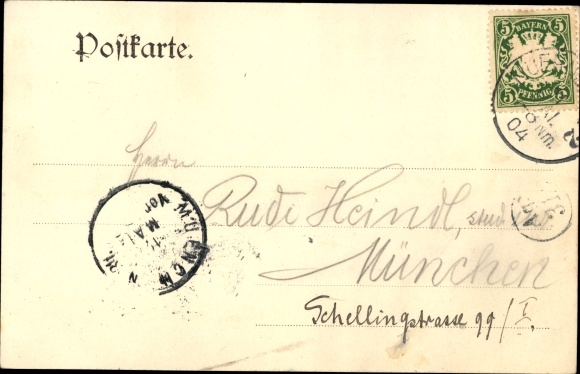 Postkarte.
5 BAYERN 5
5 PFENNIG 5
8 Nm.
04
Herrn
Rudi Heindl, stud.
München
Schellingstrasse 99/I.
MUENCHEN
Vor
MAI